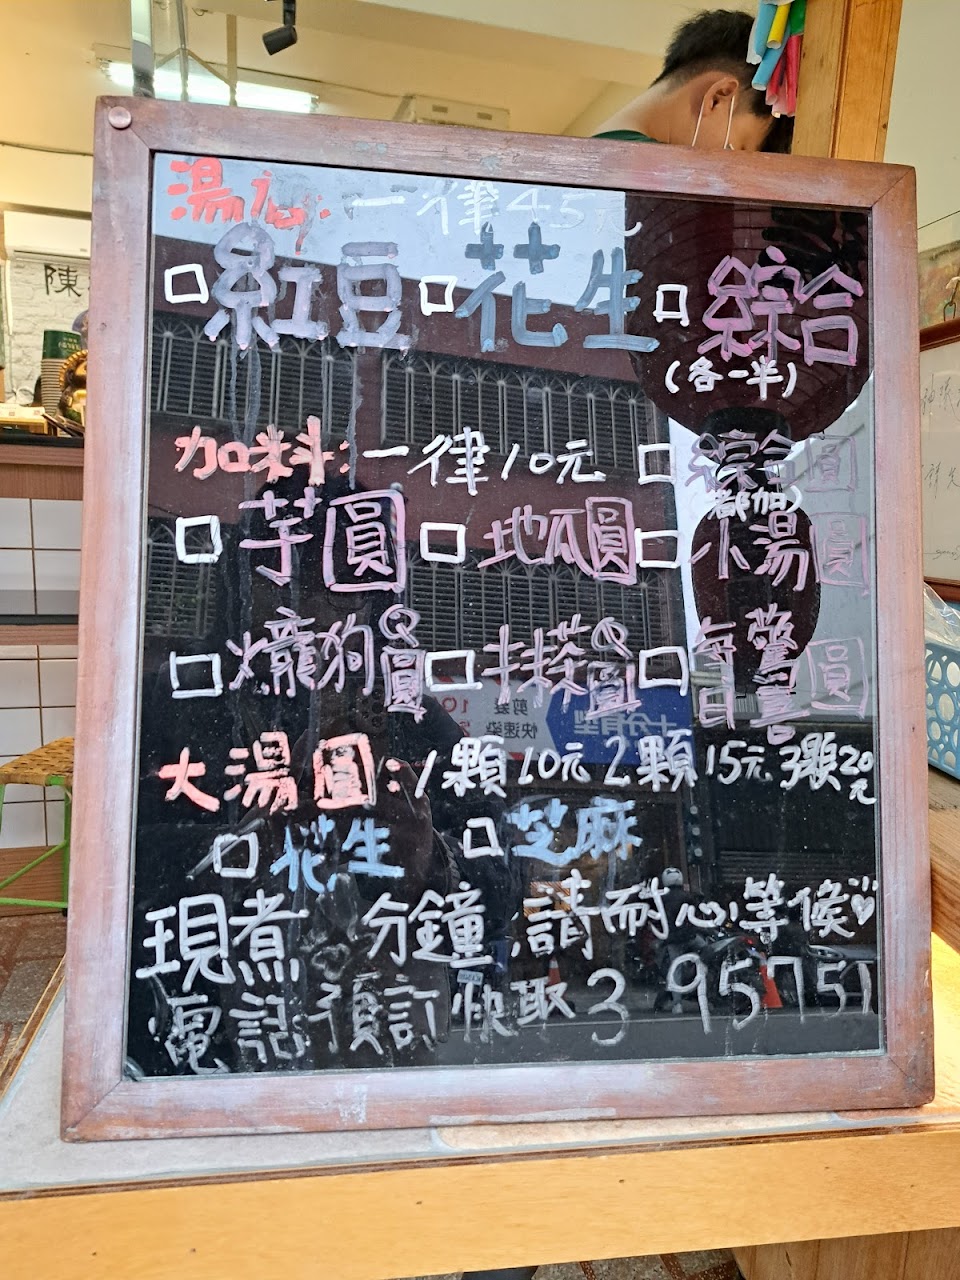 湯心:一律45元
□紅豆□花生□綜合
(各一半)
加料:一律10元□綜合圓
(都加)
□芋圓□地瓜圓□小湯圓
□爞狗Q圓□抹茶Q圓□每日驚喜圓
大湯圓:1顆10元2顆15元3顆20元
□花生□芝麻
現煮 分鐘 請耐心等候
電話預訂快取3 95751
陳